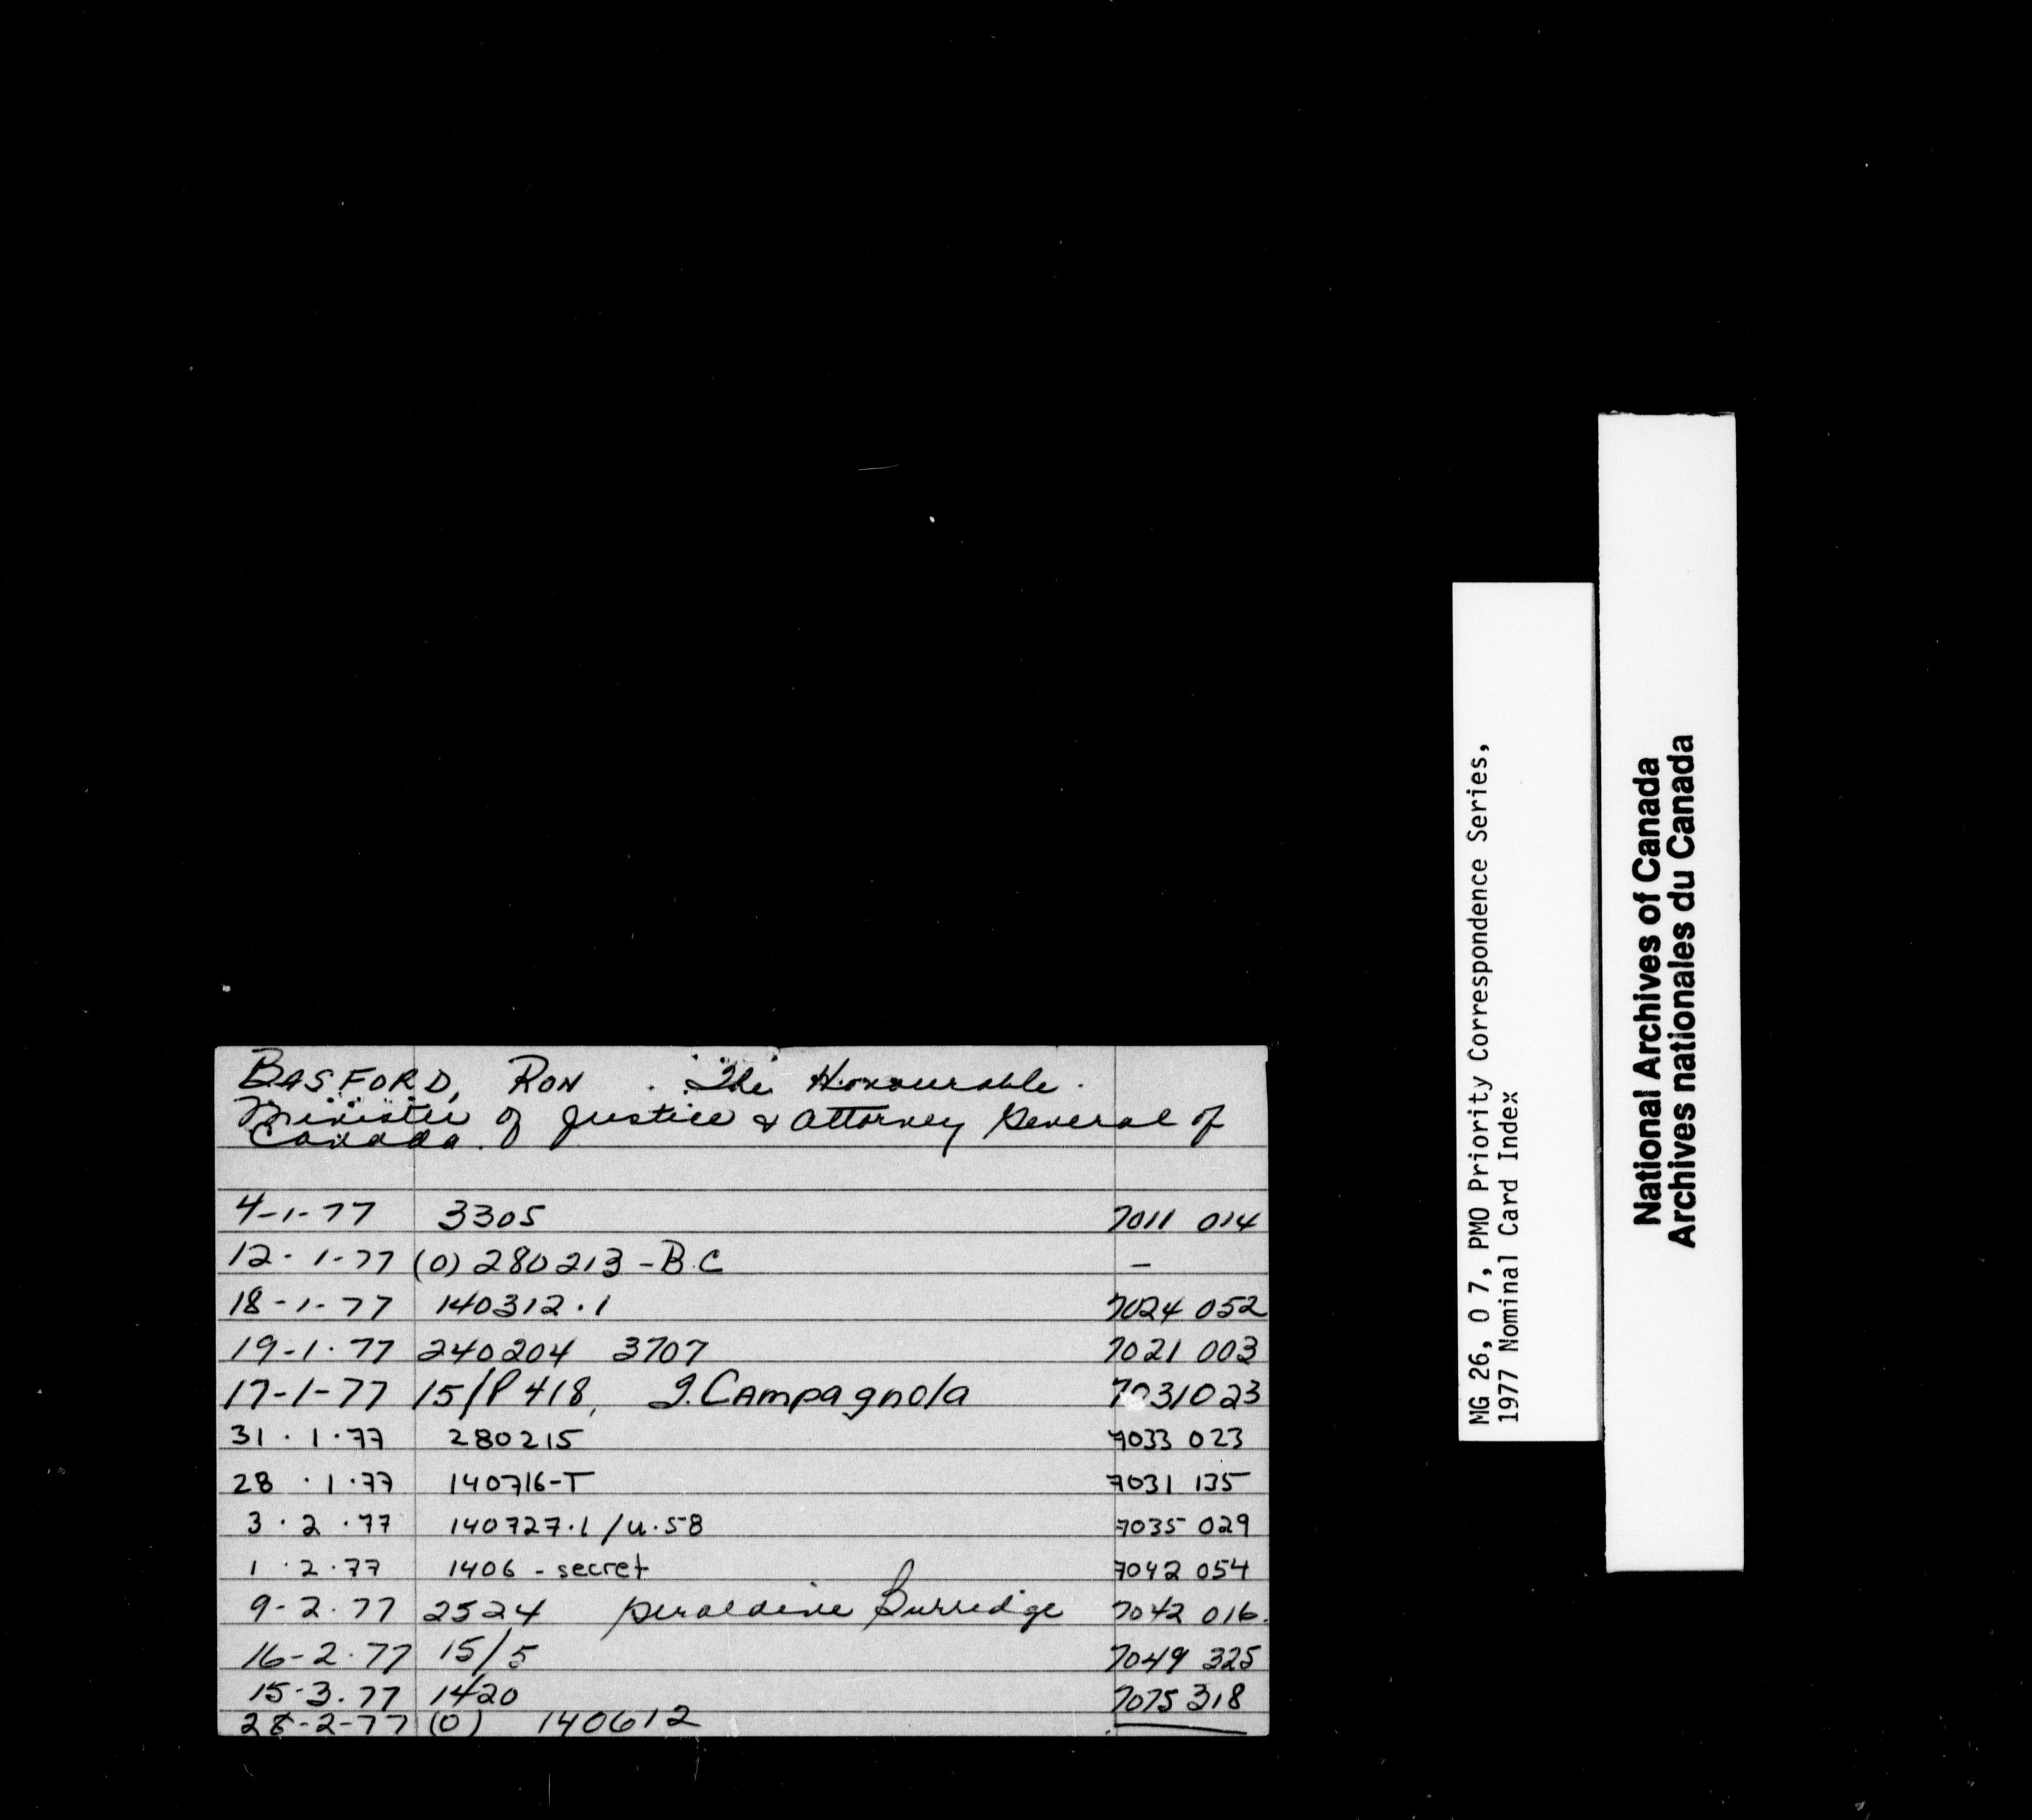 BASFORD, RON . The Honourable.
Minister of Justice & Attorney General of
Canada.
4-1-77 3305 7011 014
12-1-77 (0) 280213 -B.C —
18-1-77 140312.1 7024 052
19-1.77 240204 3707 7021 003
17-1-77 15/P418, I. Campagnola 7031023
31.1.77 280215 7033 023
28.1.77 140716-T 7031 135
3.2.77 140727.1/U.58 7035 029
1.2.77 1406 - secret 7042 054
9-2.77 2524 Geraldine Burridge 7042 016.
16-2.77 15/5 7049 325
15-3.77 1420 7075 318
28-2-77 (0) 140612 —
MG 26, O 7, PMO Priority Correspondence Series,
1977 Nominal Card Index
National Archives of Canada
Archives nationales du Canada